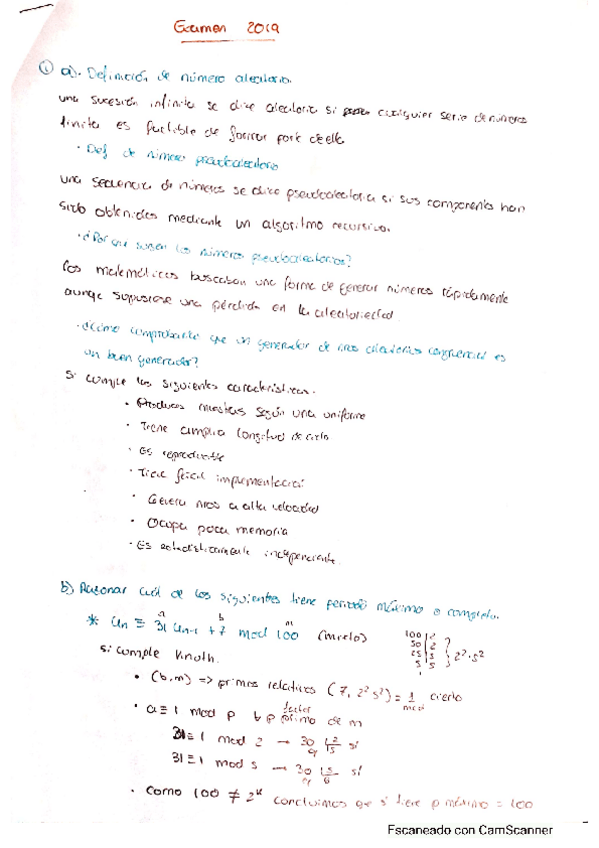 Examen 2019
① a). Definición de número aleatorio.
una sucesión infinita se dice aleatoria si cualquier serie de números
finita es factible de formar parte de ella
· Def de número pseudoaleatorio
una secuencia de números se dice pseudoaleatoria si sus componentes han
sido obtenidos mediante un algoritmo recursivo.
· ¿Por qué surgen los números pseudoaleatorios?
los matemáticos buscaban una forma de generar números rápidamente
aunque supusiese una pérdida en la aleatoriedad.
· ¿Cómo comprobarías que un generador de nros aleatorios congruencial es
un buen generador?
Si cumple las siguientes características.
· Produce muestras según una uniforme
· Tiene amplia longitud de ciclo
· Es reproducible
· Tiene fácil implementación
· Genera nros a alta velocidad
· Ocupa poca memoria
· Es estadísticamente independiente.
b) Razonar cuál de los siguientes tiene periodo máximo o completo.
a b m
* Un ≡ 31 Un-1 + 7 mod 100 (mixto)
100 | 2
50 | 2
25 | 5
5 | 5
} 2² · 5²
Si cumple Knuth.
· (b,m) => primos relativos (7, 2² 5²) = 1 cierto
mcd
factor
· a ≡ 1 mod p ∀ p primo de m
31 ≡ 1 mod 2 → 30 |2 sí
0 15
31 ≡ 1 mod 5 → 30 |5 sí
0 6
· Como 100 ≠ 2ᵏ concluimos que sí tiene p máximo = 100
Escaneado con CamScanner